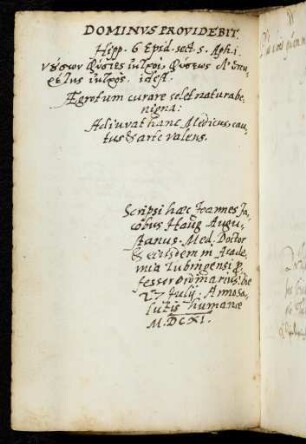 DOMINVS PROVIDEBIT.
Hipp. 6 Epid. sect. 5. Aph. 1.
νούσων φύσιες ἰητροί, φύσεως δ'
ἰητρός. idest.
Ægrotum curare solet natura be,
nigna:
Adiuvat hanc Medicus, cau,
tus & arte valens.
Scripsi hæc Joannes Ja,
cobus Haug Augu,
stanus. Med. Doctor
& eiusdem in Acade,
mia Tubingensi p,
fessor ordinarius. die
27 Julij. Anno sa,
lutis humanæ
M.DCXI.